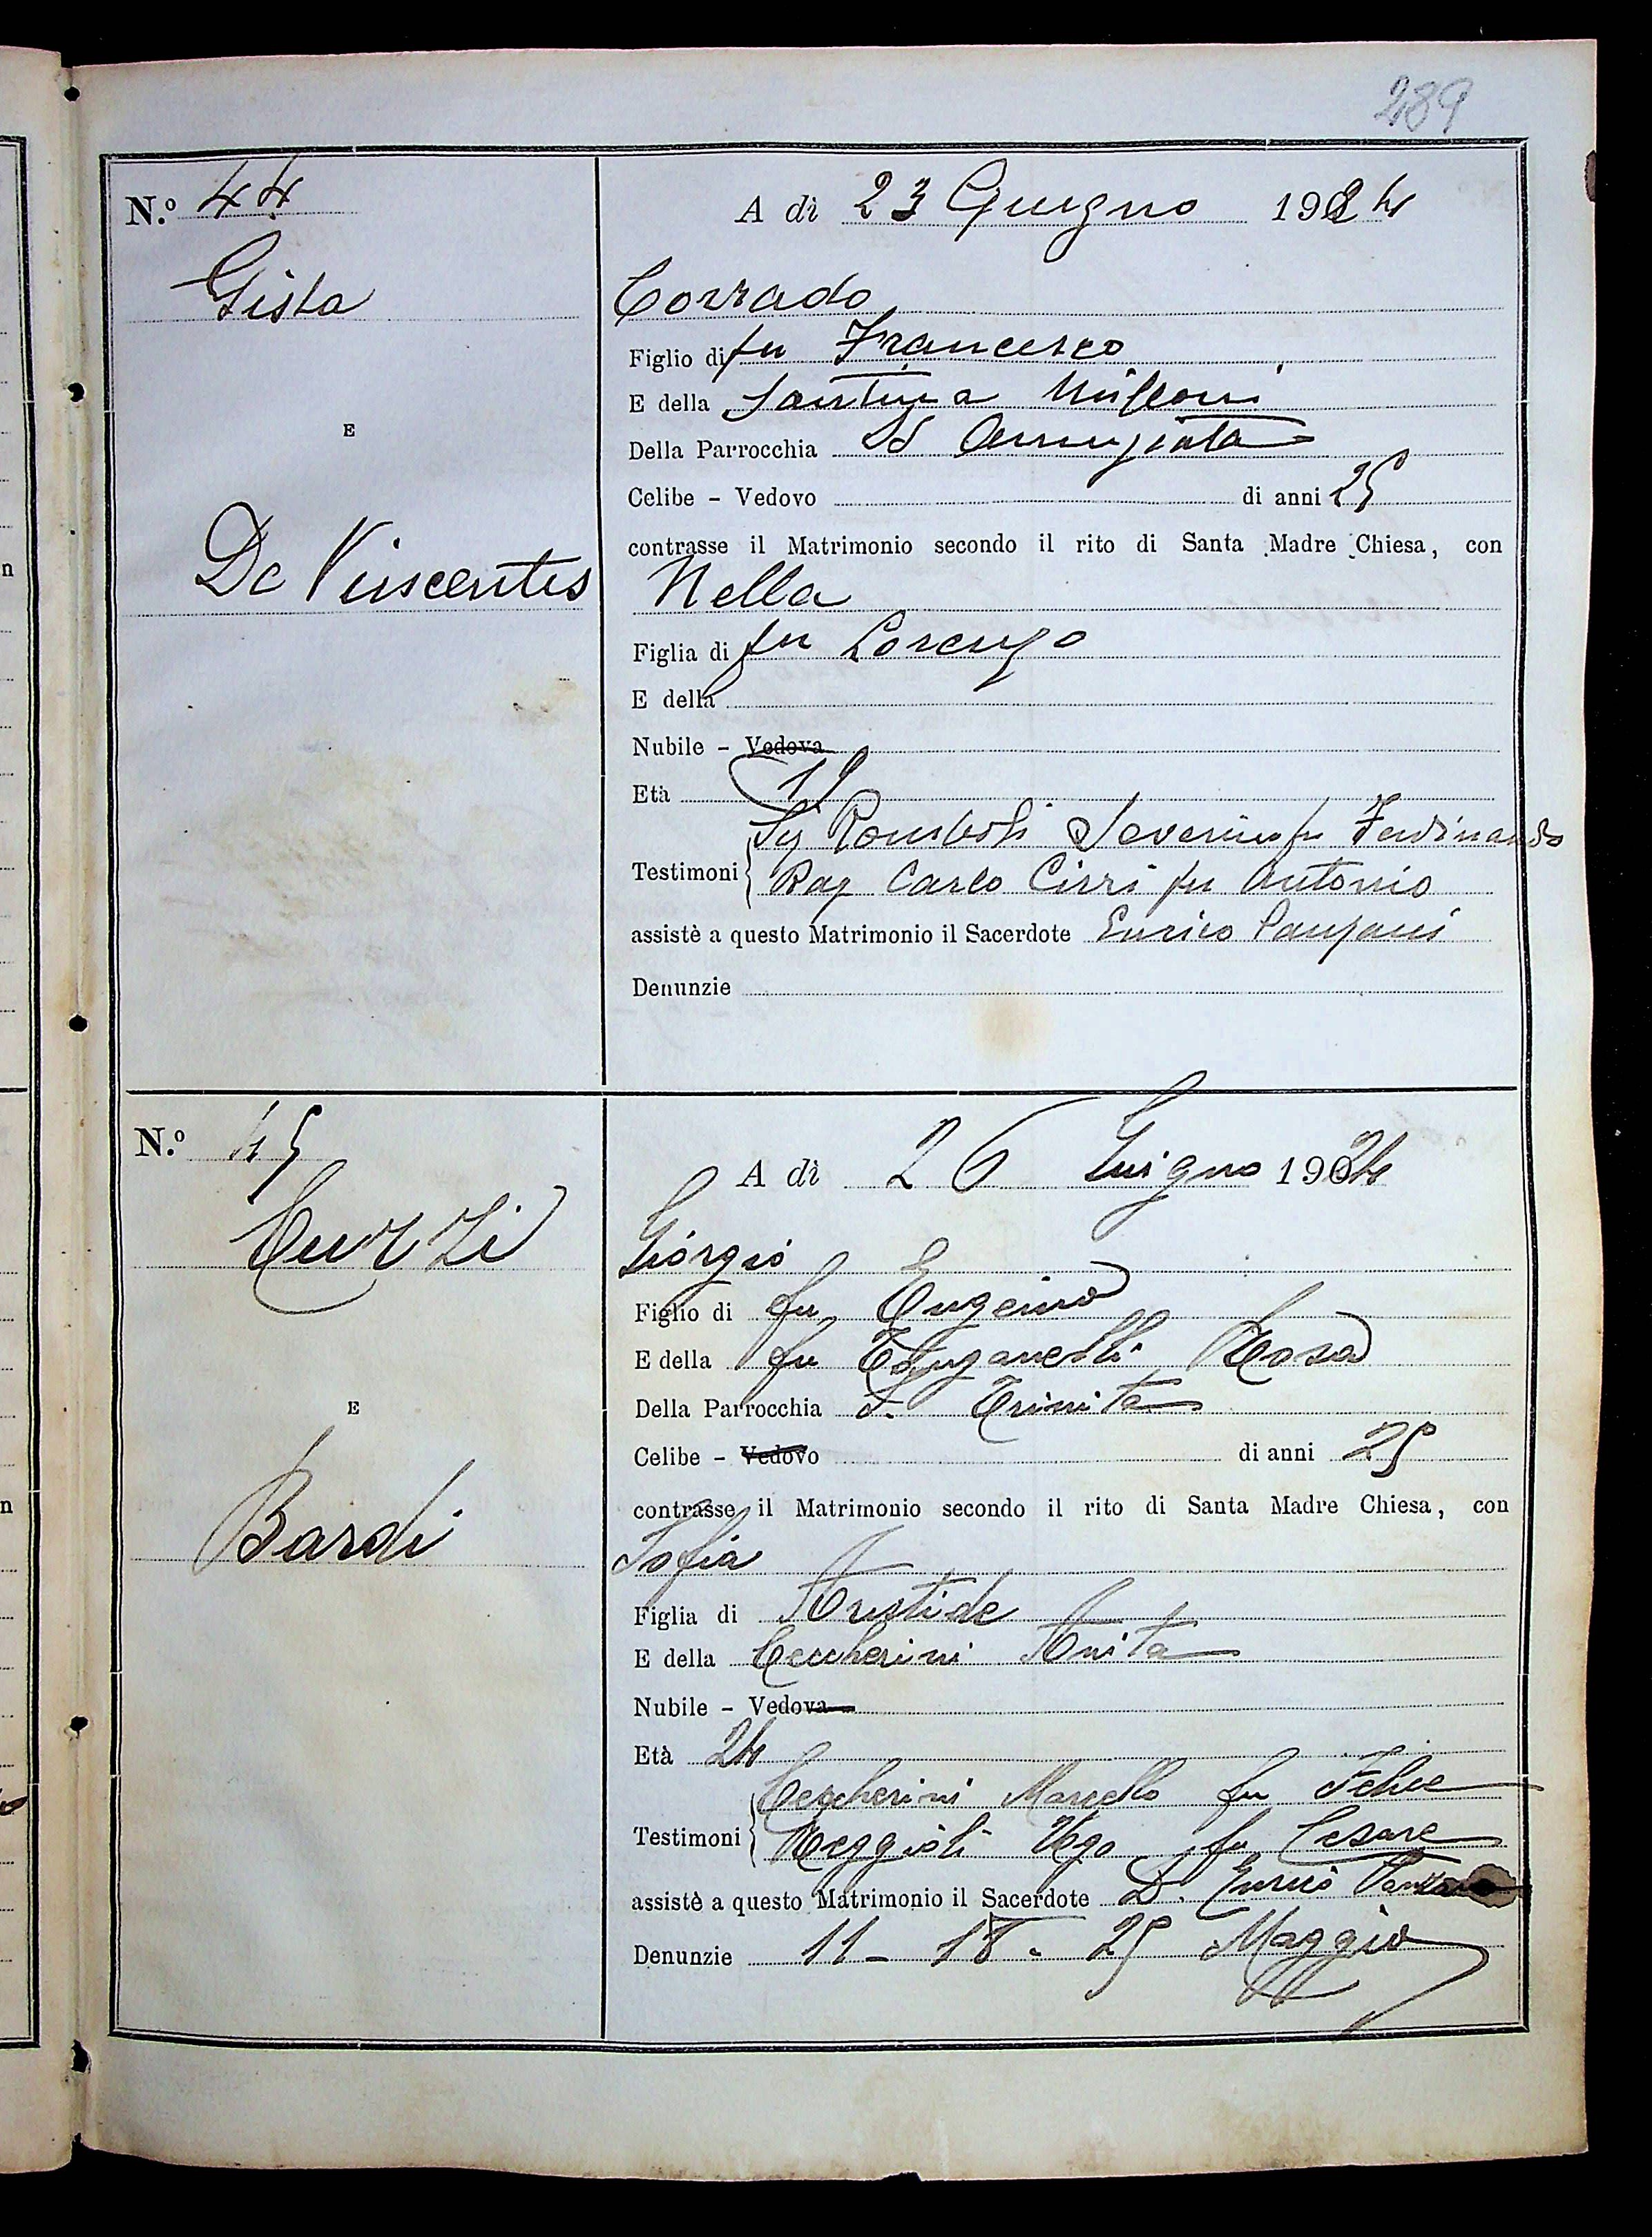 289
N.º 44
A dì 23 Giugno 1924
Gista
Corrado
Figlio di fu Francesco
E della Santina
Della Parrocchia SS Annunziata
E
Celibe - Vedovo di anni 25
contrasse il Matrimonio secondo il rito di Santa Madre Chiesa, con
De Vinscentis
Nella
Figlia di fu Lorenzo
E della
Nubile - Vedova
Età 19
Sig Romboli Severino fu Ferdinando
Testimoni
Rag Carlo Cirri fu Antonio
assistè a questo Matrimonio il Sacerdote Enrico Panzani
Denunzie
N.º 45
A dì 26 Giugno 1924
Curzi
Giorgio
Figlio di fu Eugenio
E della fu Rosa
Della Parrocchia S. Trinita
E
Celibe - Vedovo di anni 25
contrasse il Matrimonio secondo il rito di Santa Madre Chiesa, con
Bardi
Sofia
Figlia di Aristide
E della Ceccherini Anita
Nubile - Vedova
Età 24
Ceccherini Marcello fu Felice
Testimoni
Reggioli Ugo fu Cesare
assistè a questo Matrimonio il Sacerdote D. Enrico Panzani
Denunzie 11 - 18 - 25 Maggio